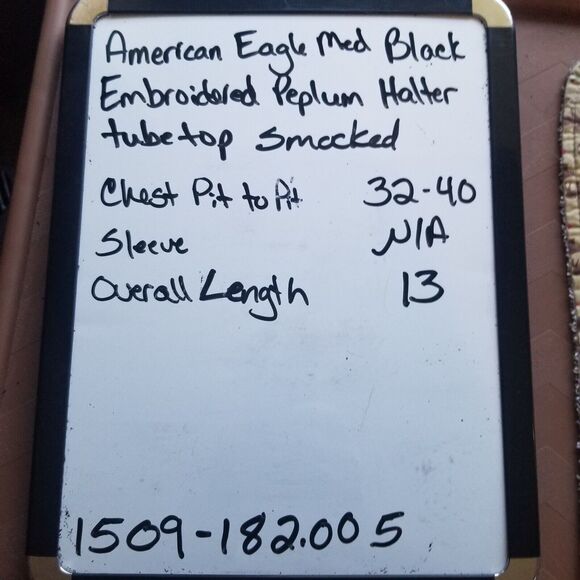 American Eagle Med Black
Embroidered Peplum Halter
tube top smocked
Chest Pit to Pit 32-40
Sleeve N/A
Overall Length 13
1509-182.005